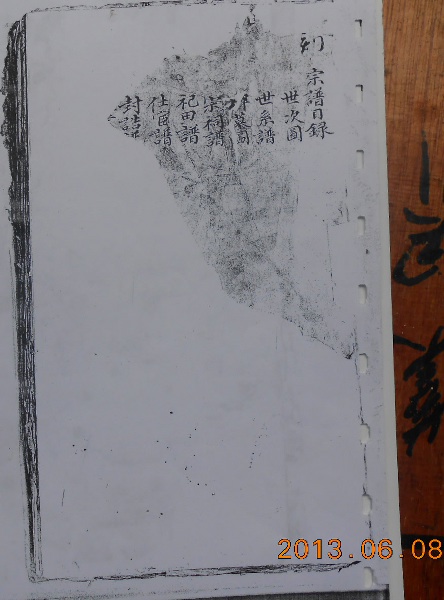 宗譜目錄
世次圖
世系譜
墓圖
宗祠譜
祀田譜
仕宦譜
封誥譜
2013.06.08